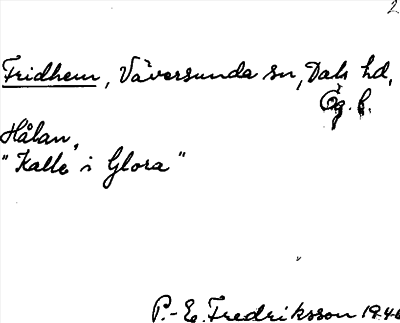 2
Fridhem, Väversunda sn, Dals hd,
Ög. f.
Hålan,
"Kalle i Glora"
P.-E. Fredriksson 1946